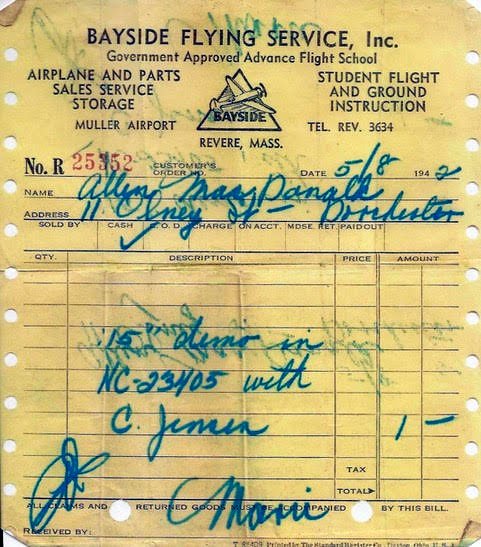 BAYSIDE FLYING SERVICE, Inc.
Government Approved Advance Flight School
AIRPLANE AND PARTS
SALES SERVICE
STORAGE
STUDENT FLIGHT
AND GROUND
INSTRUCTION
BAYSIDE
MULLER AIRPORT
TEL. REV. 3634
REVERE, MASS.
No. R 25352 CUSTOMER'S ORDER NO. DATE 5/8 1942
NAME Allen MacDonald
ADDRESS 11 Olney St - Dorchester
SOLD BY CASH C.O.D. CHARGE ON ACCT. MDSE. RET. PAID OUT
QTY. DESCRIPTION PRICE AMOUNT
15 demo in
NC-23405 with
C. Jensen 1 -
TAX
TOTAL
Marie
ALL CLAIMS AND RETURNED GOODS MUST BE ACCOMPANIED BY THIS BILL.
RECEIVED BY:
Printed by The Standard Register Co., Dayton, Ohio, U.S.A.